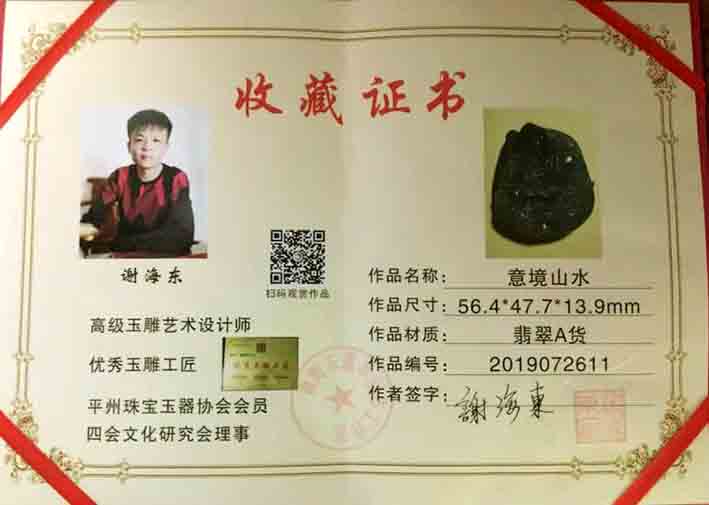 收藏证书
谢海东
扫码观赏作品
高级玉雕艺术设计师
优秀玉雕工匠
平州珠宝玉器协会会员
四会文化研究会理事
作品名称: 意境山水
作品尺寸: 56.4*47.7*13.9mm
作品材质: 翡翠A货
作品编号: 2019072611
作者签字: 謝海東